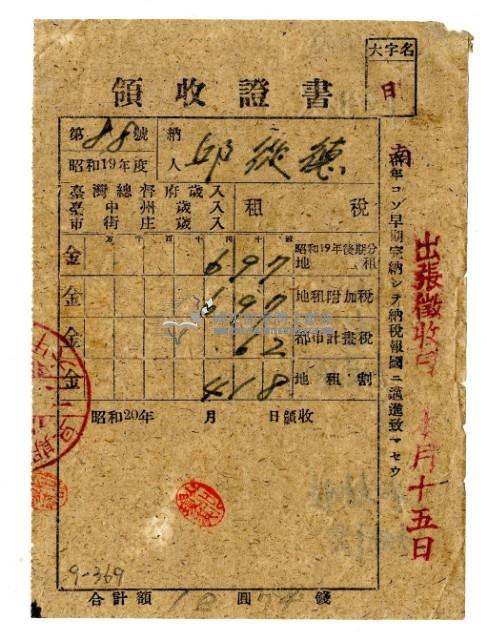 大字名
日
南
領收證書
第88號
昭和19年度
納
人
邱從德
臺灣總督府歲入
臺中州歲入
市街庄歲入
租稅
金 697
昭和19年後期分
地租
金 197
地租附加稅
金 62
都市計畫稅
金 418
地租割
昭和20年 月 日領收
年コソ早期完納シテ納稅報國ニ邁進致マセウ
出張徵收日 月十五日
9-369
合計額 圓 錢